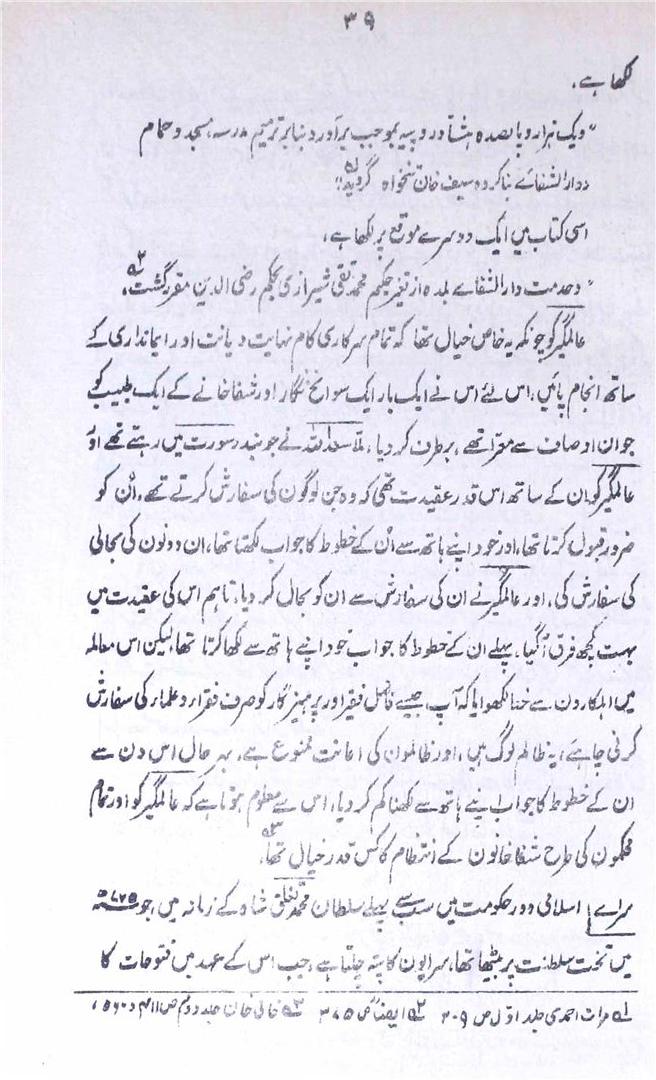 ۳۹
لکھا ہے،
"ویک ہزار و پانصد و ہشتاد روپیہ بموجب برآورد بنا بر ترمیم مدرسہ، مسجد و حمام
و دار الشفائے بنا کردہ سیف خان تنخواہ گردید"
اسی کتاب میں ایک دوسرے موقع پر لکھا ہے،
"وخدمت دار الشفائے بلدہ از تغیر حکیم محمد تقی شیرازی بحکیم رضی الدین مقرر گشت"،
عالمگیر کو چونکہ یہ خاص خیال تھا کہ تمام سرکاری کام نہایت دیانت اور ایمانداری کے
ساتھ انجام پائیں، اس لئے اس نے ایک بار ایک سوانح نگار اور شفاخانے کے ایک طبیب کو
جو ان اوصاف سے معرا تھے، برطرف کر دیا، ملا سعد اللہ نے جو بندر سورت میں رہتے تھے اور
عالمگیر کو ان کے ساتھ اس قدر عقیدت تھی کہ وہ جن لوگوں کی سفارش کرتے تھے، ان کو
ضرور قبول کرتا تھا، اور خود اپنے ہاتھ سے ان کے خطوط کا جواب لکھتا تھا، ان دونوں کی بحالی
کی سفارش کی، اور عالمگیر نے ان کی سفارش سے ان کو بحال کر دیا، تاہم اس کی عقیدت میں
بہت کچھ فرق آگیا، پہلے ان کے خطوط کا جواب خود اپنے ہاتھ سے لکھا کرتا تھا، لیکن اس معاملہ
میں اہلکاروں سے خط لکھوایا کہ آپ جیسے فاضل فقیر اور پرہیزگار کو صرف فقراء و علماء کی سفارش
کرنی چاہئے، یہ ظالم لوگ ہیں، اور ظالموں کی اعانت ممنوع ہے، بہر حال اس دن سے
ان کے خطوط کا جواب اپنے ہاتھ سے لکھنا کم کر دیا، اس سے معلوم ہوتا ہے کہ عالمگیر کو اور تمام
محکموں کی طرح شفاخانوں کے انتظام کا کس قدر خیال تھا،
سرائے | اسلامی دور حکومت میں سب سے پہلے سلطان محمد تغلق شاہ کے زمانہ میں، جو ۷۲۵ھ
میں تخت سلطنت پر بیٹھا تھا، سرایوں کا پتہ چلتا ہے، جب اس کے عہد میں فتوحات کا
۱ مرات احمدی جلد اول ص ۳۰۹ ۲ ایضاً ص ۳۷۵ ۳ خافی خان جلد دوم ص ۴۱۱ و ۵۶۰،